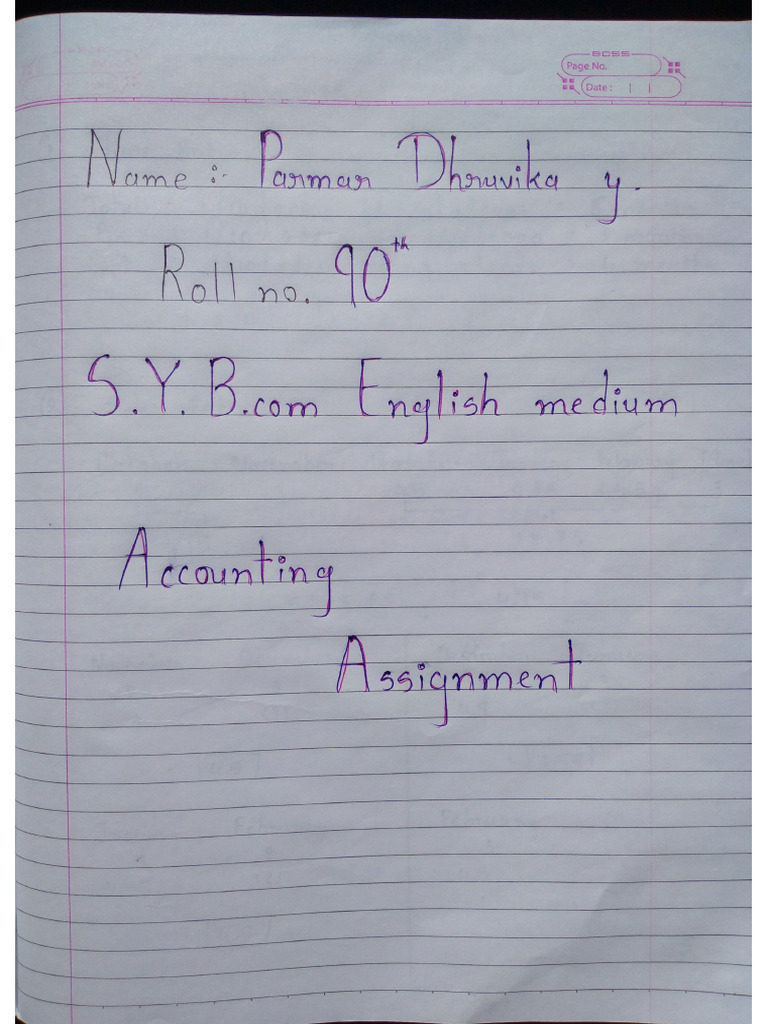 SCSS
Page No.
Date : | |
Name :- Parmar Dhruvika y.
Roll no. 90th
S.Y. B.com English medium
Accounting
Assignment